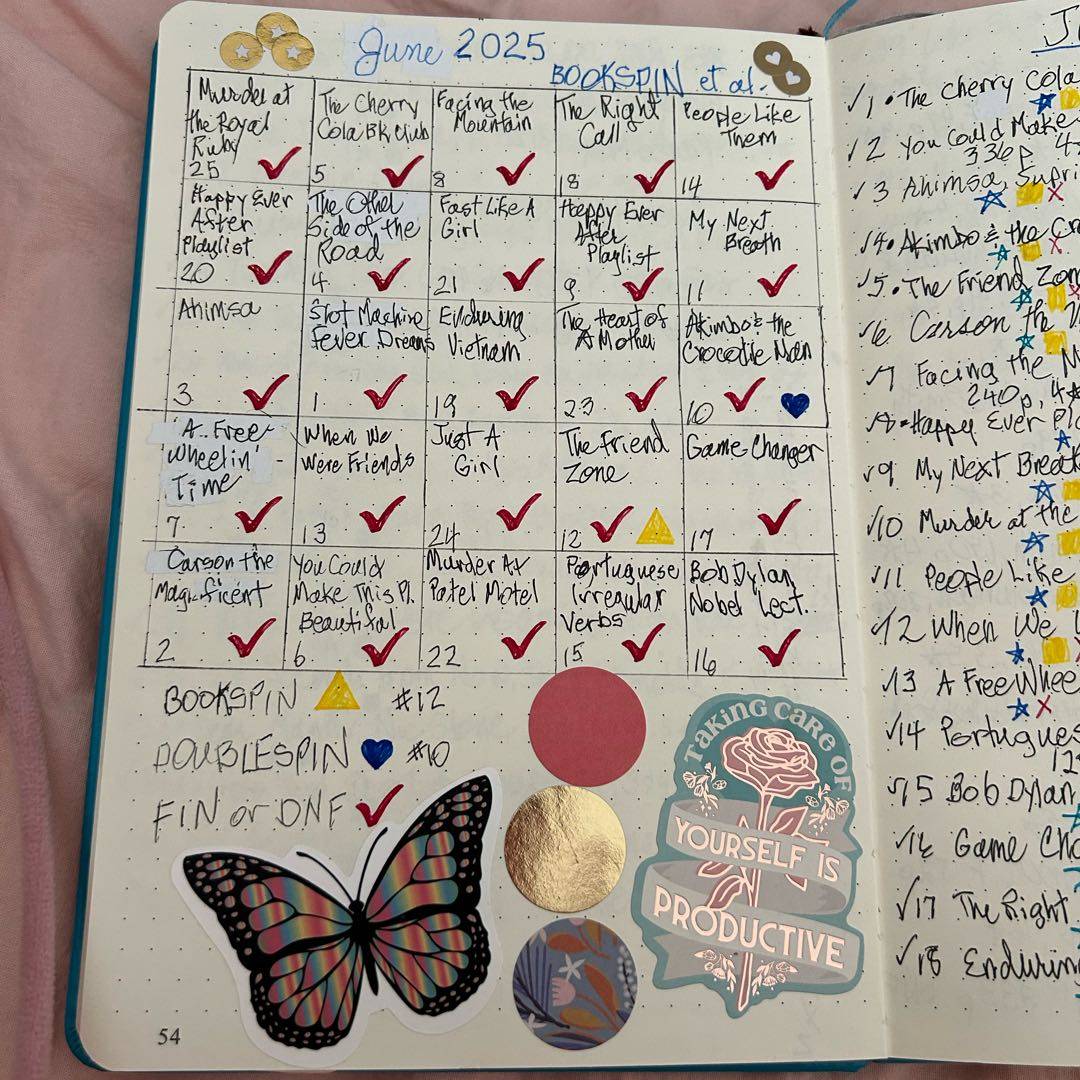 June 2025
BOOKSPIN et al.
Murder at
the Royal
Ruby
25
The Cherry
Cola Bk Club
5
Facing the
Mountain
8
The Right
Call
18
People Like
Them
14
Happy Ever
After
Playlist
20
The Other
Side of the
Road
4
Fast Like A
Girl
21
Happy Ever
After
Playlist
9
My Next
Breath
11
Ahimsa
3
Slot Machine
Fever Dreams
1
Enduring
Vietnam
19
The Heart of
A Mother
23
Akimbo & the
Crocodile Man
10
A Free
Wheelin'
Time
7
When We
Were Friends
13
Just A
Girl
24
The Friend
Zone
12
Game Changer
17
Carson the
Magnificent
2
You Could
Make This Pl.
Beautiful
6
Murder At
Patel Motel
22
Portuguese
Irregular
Verbs
15
Bob Dylan
Nobel Lect.
16
BOOKSPIN #12
DOUBLESPIN #10
FIN or DNF
TAKING CARE OF
YOURSELF IS
PRODUCTIVE
54
1 • The Cherry Cola
2 You Could Make
336p
3 Ahimsa,
4 • Akimbo & the Cr
5 • The Friend Zon
6 Carson the
7 Facing the M
240p,
8 • Happy Ever Pl
9 My Next Breath
10 Murder at the
11 People Like
12 When We
13 A Free Whee
14 Portugues
15 Bob Dylan
16 Game Ch
17 The Right
18 Enduring